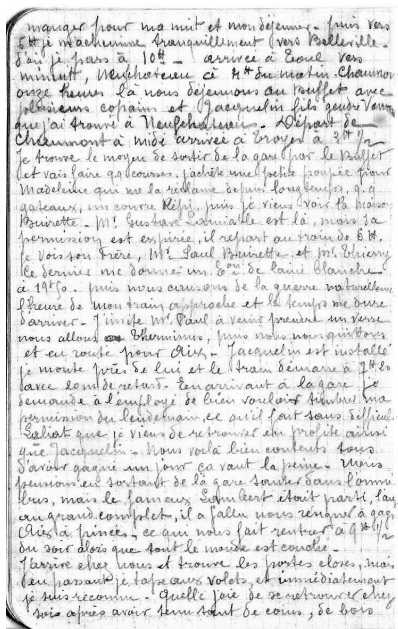 manger pour ma nuit et mon déjeuner - puis vers
5H je m'achemine tranquillement vers Belleville
d'où je pars à 10H - arrivée à Toul vers
minuit, Neufchateau à 4H du matin. Chaumont
onze heures là nous déjeunons au Buffet avec
plusieurs copains et Jacquelin fils gendre
que j'ai trouvé à Neufchateau. - Départ de
Chaumont à midi arrivée à Troyes à 3H 1/2
je trouve le moyen de sortir de la gare par le Buffet
et vais faire qq courses. j'achète une petite poupée pour
Madeleine qui me la réclame depuis longtemps, q.q
gateaux, un couvre Képi, puis je viens voir la maison
Buirette. - Mr Gustave est là, mais sa
permission est expirée, il repart au train de 6H.
Je vois son frère, Mr Paul Buirette et Mr Thierry
Ce dernier me donne un de laine blanche
à 19f50. puis nous causons de la guerre
l'heure de mon train approche et le temps me dure
d'arriver. - J'invite Mr Paul à venir prendre un verre
nous allons Thermines, puis nous nous quittons
et en route pour Aix. - Jacquelin est installé
je monte près de lui et le train démarre à 7H
avec de retard. - En arrivant à la gare je
demande à l'employé de bien vouloir timbrer ma
permission du lendemain, ce qu'il fait sans difficulté.
que je viens de retrouver en profite ainsi
que Jacquelin. - Nous voilà bien contents tous
d'avoir gagné un jour ça vaut la peine. - Nous
pensions en sortant de la gare sauter dans l'omni
bus, mais le fameux Lambert était parti,
au grand complet, il a fallu nous résigner à gagner
Aix à pinces, ce qui nous fait rentrer à 9H 1/2
du soir alors que tout le monde est couché. -
J'arrive chez nous et trouve les portes closes, mais
en passant je tape aux volets, et immédiatement
je suis reconnu. - Quelle joie de se retrouver chez
soi après avoir tenu tant de coins, de bois